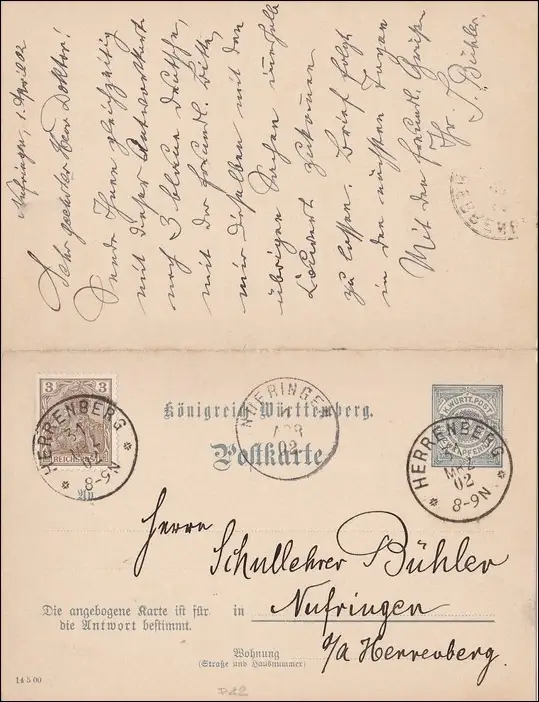 Nufringen, 1. April 02
Sehr geehrter Herr Doktor!
Sende Ihnen gleichzeitig
mit dieser Antwortkart
noch 3 blaue deutsche,
mit der freundl. Bitte,
mir dieselben mit den
übrigen Sachen
zukommen
zu lassen. Brief folgt
in den nächsten Tagen
Mit den freundl. Grüßen
Ihr S. Bühler.
3 3
REICHSPOST
HERRENBERG
02
8-9N
Königreich Württemberg.
NUFRINGEN
1
APR
02
Postkarte
K. WÜRTT. POST
HERRENBERG
31
MRZ
02
8-9N
An
Herrn
Schullehrer Bühler
Die angebogene Karte ist für
die Antwort bestimmt.
in Nufringen
Wohnung
(Straße und Hausnummer)
O/A Herrenberg.
14 5 00